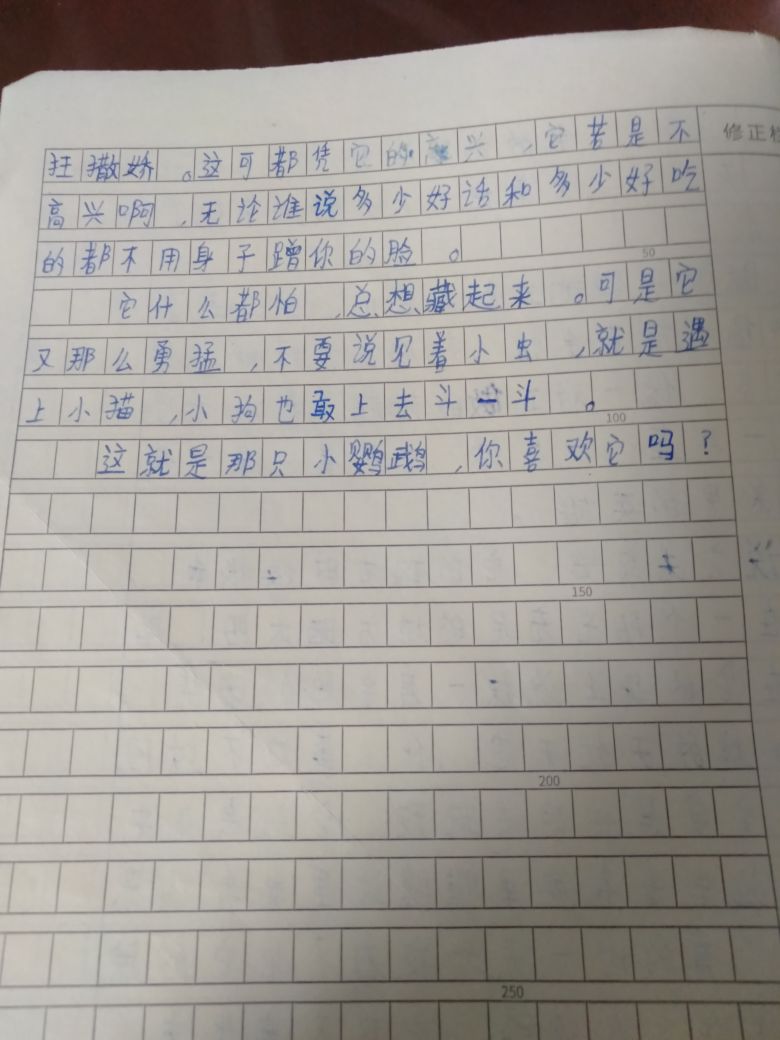 狂撒娇。这可都凭它的高兴,它若是不
修正栏
高兴啊,无论谁说多少好话和多少好吃
的都不用身子蹭你的脸。
50
它什么都怕,总想藏起来。可是它
又那么勇猛,不要说见着小虫,就是遇
上小猫,小狗也敢上去斗一斗。
100
这就是那只小鹦鹉,你喜欢它吗?
150
200
250